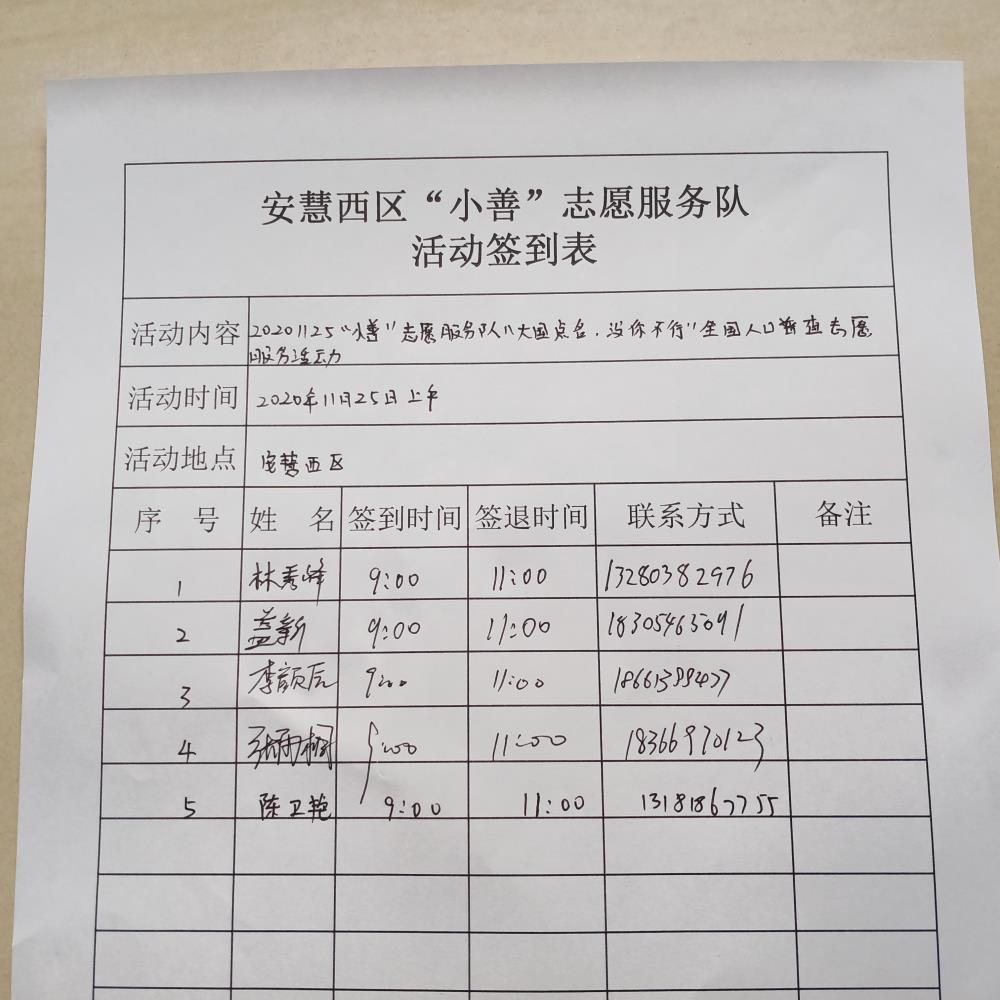 安慧西区“小善”志愿服务队
活动签到表
活动内容 20201125“小善”志愿服务队“大国点名，没你不行”全国人口普查志愿
服务活动
活动时间 2020年11月25日上午
活动地点 安慧西区
序 号 姓 名 签到时间 签退时间 联系方式 备注
1 林秀峰 9:00 11:00 13280382976
2 益新 9:00 11:00 18305463091
3 李颜辰 9:00 11:00
4 张雨桐 9:00 11:00 18366970123
5 陈卫艳 9:00 11:00 13181867755